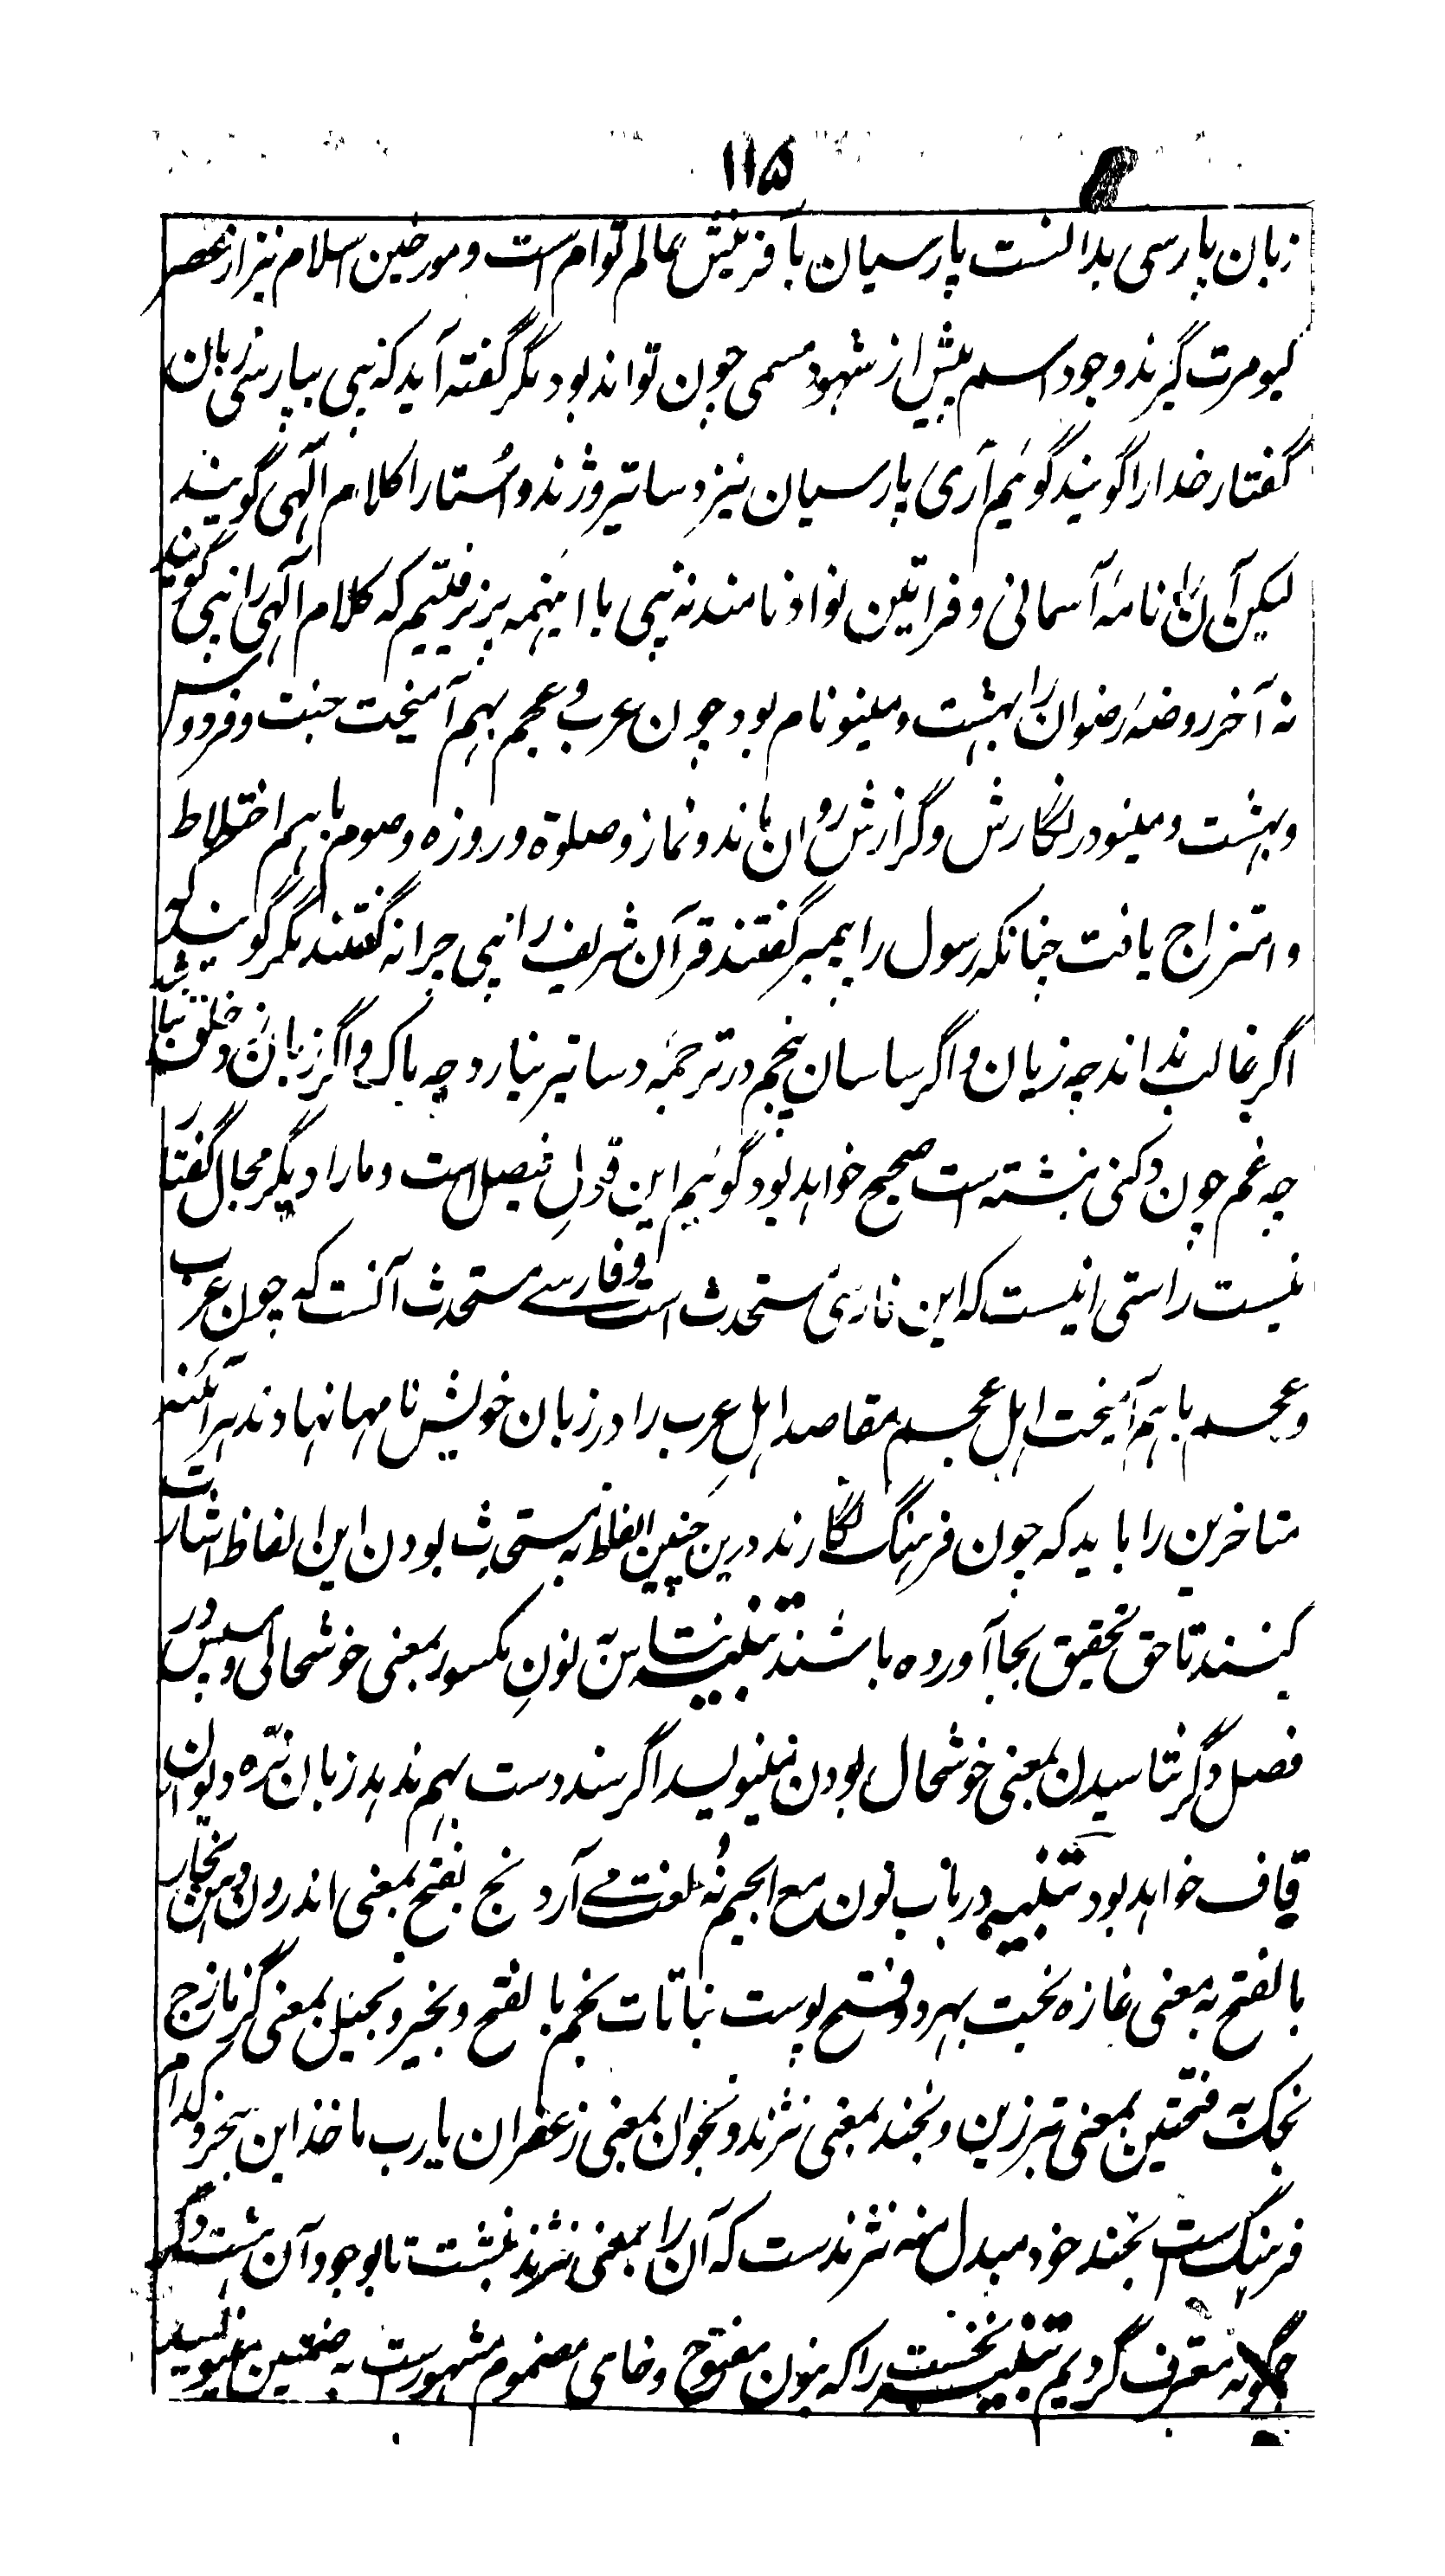 ۱۱۵
زبان پارسی بدانست پارسیان بآفرینش عالم توام است و مورخین اسلام نیز از عصر
کیومرت گیرند وجود اسم پیش از شهود مسمی چون تواند بود مگر گفته آید که نپی بپارسی زبان
گفتار خدا را گویند گوئیم آری پارسیان نیز دساتیر و ژند و اُستا را کلام آلهی گویند
لیکن آن را نامهٔ آسمانی و فراتین نواد نامند نه نپی با اینهمه پزیرفتیم که کلام آلهی را نپی گویند
نه آخر روضهٔ رضوان را بهشت و مینو نام بود چون عرب و عجم بهم آمیخت جنت و فردوس
و بهشت و مینو در نگارش و گزارش روان ماند و نماز و صلوة و روزه و صوم باهم اختلاط
و امتزاج یافت چنانکه رسول را پیمبر گفتند قرآن شریف را نپی چرا نه گفتند مگر گویند که
اگر غالب نداند چه زیان و اگر ساسان پنجم در ترجمهٔ دساتیر نیارد چه باک و اگر زبان زد خلق نباشد
چه غم چون دکنی نبشته است صحیح خواهد بود گوئیم این قول فیصل است و مارا دیگر مجال گفتار
نیست راستی اینست که این فارسی مستحدث است و فارسے مستحدث آنست که چون عرب
و عجم باهم آمیخت اهل عجم مقاصد اهلِ عرب را در زبان خویش نامها نهادند هر آئینه
متاخرین را باید که چون فرهنگ نگارند درین چنین الفاظ به مستحدث بودن این الفاظ اشارت
کنند تا حق تحقیق بجا آورده باشند تنبیه نشاس به نونِ مکسور بمعنی خوشحالی و سپس در
فصل دگر نشاسیدن بمعنی خوشحال بودن مینویسد اگر سند دست بهم ندهد زبان نرّه دیوان
قاف خواهد بود تنبیه در باب نون مع الجیم نُه لغت مے آرد نج بفتح بمعنی اندرون دهن نجار
بالفتح به معنی غازه نجبت بهر دو فتح پوست نباتات نجم بالفتح و نجیر و نجیل بمعنی گزمازج
نجک به فتحتین بمعنی تبرزین و نجند بمعنی نژند و نجوان بمعنی زعفران یارب ماخذ این بخرد کدام
فرهنگ ست نجند خود مبدل منه نژندست که آن را بمعنی نژند نبشت تا بوجود آن هشت دگر
چگونه معترف گردیم تنبیه نخست را که بنون مفتوح و خای مضموم مشهورست به ضمتین مینویسد